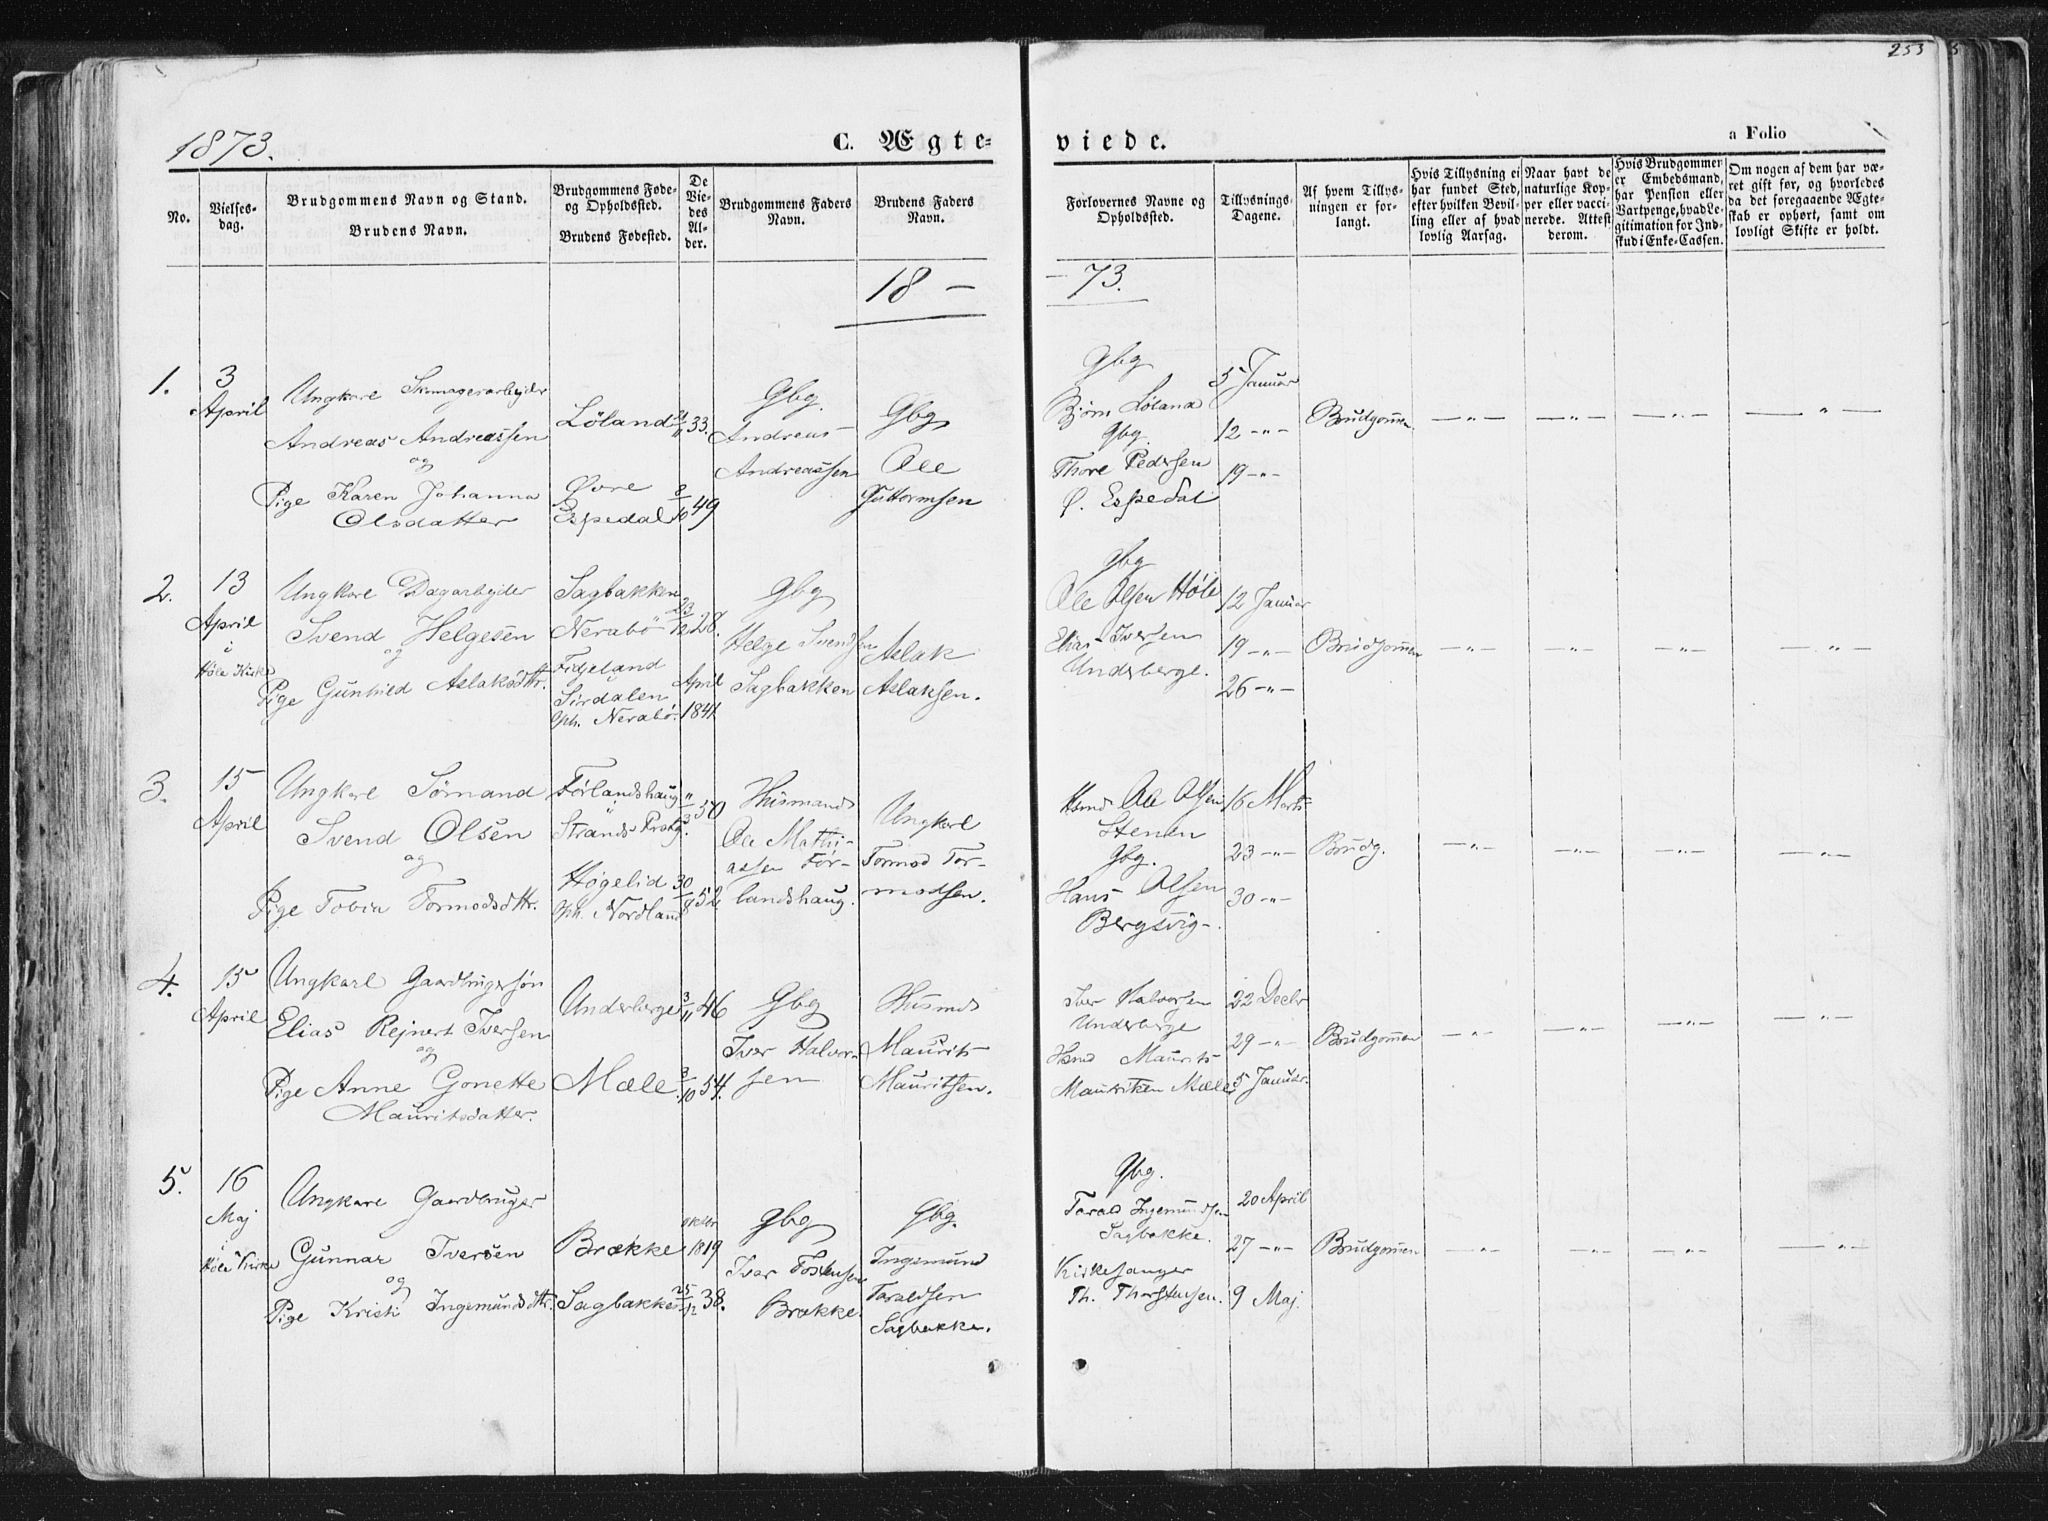 253
1873.
C. Ægte-
viede.
a Folio
No.
Vielses-
dag.
Brudgommens Navn og Stand.
Brudens Navn.
Brudgommens Føde-
og Opholdssted.
Brudens Fødested.
De
Vie-
des
Al-
der.
Brudgommens Faders
Navn.
Brudens Faders
Navn.
Forlovernes Navne og
Opholdssted.
Tillysnings-
Dagene.
Af hvem Tillys-
ningen er for-
langt.
Hvis Tillysning ei
har fundet Sted,
efter hvilken Bevil-
ling eller af hvad
lovlig Aarsag.
Naar havt de
naturlige Kop-
per eller vacci-
nerede. Attest
derom.
Hvis Brudgommen
er Embedsmand,
har Pension eller
Vartpenge, hvad Le-
gitimation for Ind-
skud i Enke-Cassen.
Om nogen af dem har væ-
ret gift før, og hvorledes
da det foregaaende Ægte-
skab er ophørt, samt om
lovligt Skifte er holdt.
18 —
— 73.
1.
3
April
Ungkare Skomagerarbejder
Andreas Andreassen
og
Pige Karen Johanna
Olsdatter
Löland
Øvre
Espedal
33.
8/10 49
Gbg.
Andreas
Andreassen
Gbg
Ole
Guttormsen
Gbg
Bjørn Løland
Gbg.
Thore Pedersen
Ø. Espedal
5 Januar
12 -„-
19 -„-
Brudgom̅en
—„— —„— —„— —„—
2.
13
April
i
Høle Kirke
Ungkare Dagarbejder
Svend Helgesen
og
Pige Gunhild Aslaksdtr.
Sagbakken
Nerabö
Fidjeland
Sirdalen
Oph. Nerabø.
23/12 28.
April
1841
Gbg
Helge Svendsen
Sagbakken
Aslak
Aslaksen.
Gbg
Ole Olsen Høle
Elias Iversen
Underberge.
12 Januar
19 -„-
26 -„-
Brudgom̅en
—„— —„— —„— —„—
3.
15
April
Ungkarl Sømand
Svend Olsen
og
Pige Tobia Tormodsdtr.
Førlandshaug
i
Strands Prstg.
Høgelid
Oph. Nordland
11/3 50
30/8 52
Husmand
Ole Mathi-
assen Før-
landshaug.
Ungkarl
Tormod Tor-
modsen.
Hsmd Ole Olsen
Stenen
Gbg.
Hans Olsen
Bergsvig
16 Marts
23 -„-
30 -„-
Brudg.
—„— —„— —„— —„—
4.
15
April
Ungkarl Gaardbrugersøn
Elias Rejnert Iversen
og
Pige Anne Gonette
Mauritsdatter.
Underberge
Mæle
3/11 46
3/10 54.
Gbg
Iver Halvor-
sen
Husmd
Maurits
Mauritsen.
Iver Halvorsen
Underberge
Hsmd Maurits
Mauritsen Mæle
22 Decbr
29 -„-
5 Januar.
Brudgom̅en
—„— —„— —„— —„—
5.
16
Maj
i
Høle Kirke
Ungkare Gaardbruger
Gunnar Iversen
og
Pige Kristi Ingemundsdtr.
Brække
Sagbakke
oktbr
1819
25/12 38.
Gbg
Ivar Tostensen
Brække.
Gbg.
Ingemund
Taraldsen
Sagbakke.
Gbg.
Tarald Ingemundsen
Sagbakke.
Kirkesanger
Th. Thorstensen.
20 April
27 -„-
9 Maj.
Brudgom̅en
—„— —„— —„— —„—